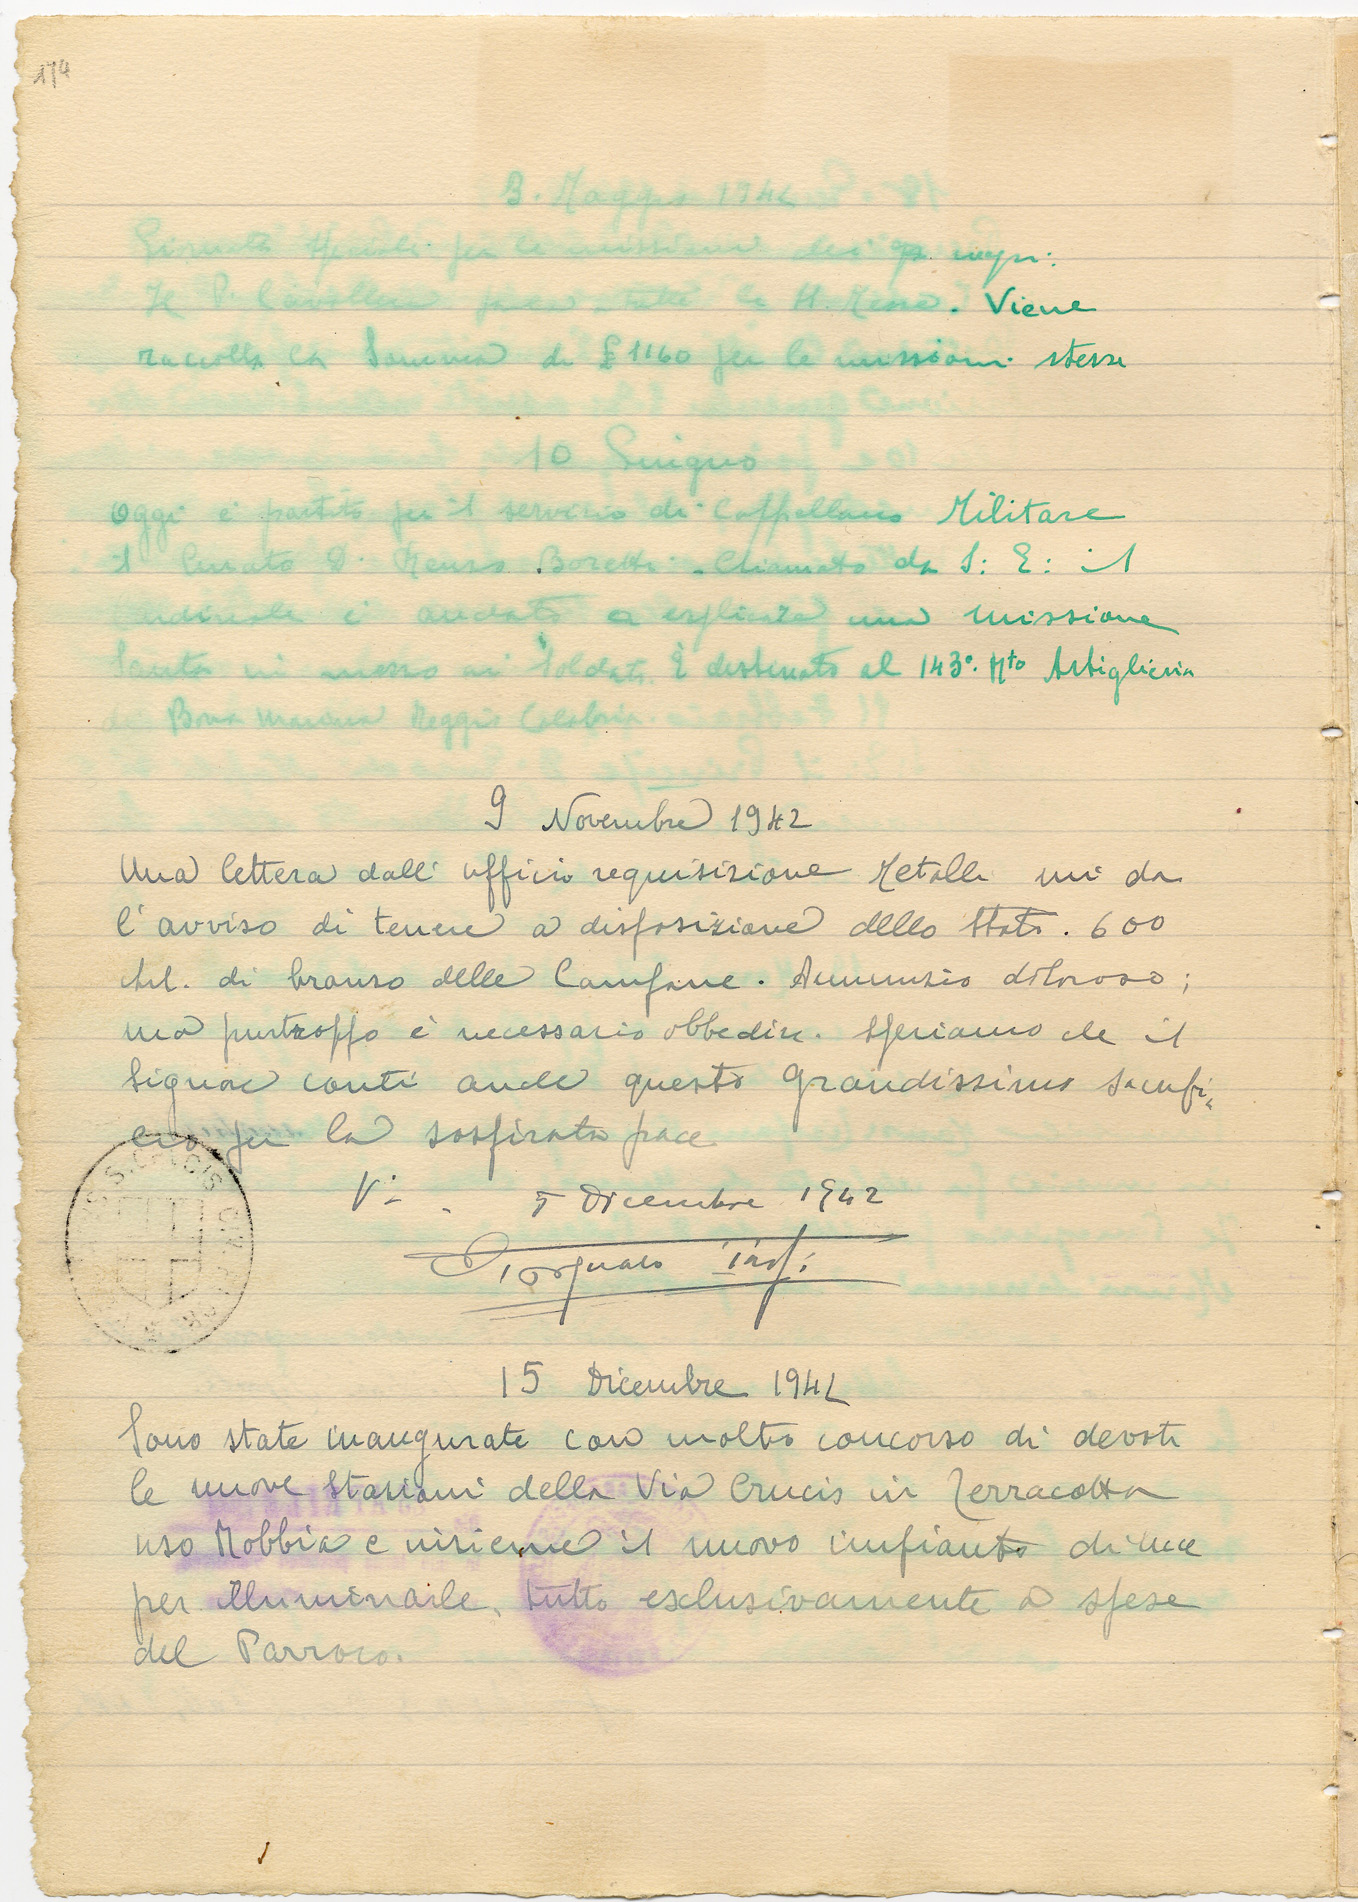 174
3. Maggio 1942
Giornata speciale per le missioni dei negri.
Il P. Cavallera parla a tutte le SS. Messe. Viene
raccolta la Somma di £ 1160 per le missioni stesse
10 Giugno
Oggi è partito per il servizio di Cappellano Militare
il Curato D. Renzo Boretti. Chiamato da S: E: il
Cardinale è andato a esplicare una missione
Santa in mezzo ai Soldati. È destinato al 143° Rto Artiglieria
di Bova marina Reggio Calabria.
9 Novembre 1942
Una lettera dall' ufficio requisizione Metalli mi da
l'avviso di tenere a disposizione dello Stato. 600
chil. di bronzo delle Campane. Annunzio doloroso;
ma purtroppo è necessario obbedire. Speriamo che il
Signore conti anche questo grandissimo sacrifi-
cio per la sospirata pace.
V: - 5 Dicembre 1942
S. CELSIS
15 Dicembre 1942
Sono state inaugurate con molto concorso di devoti
le nuove Stazioni della Via Crucis in Terracotta
uso Robbia e insieme il nuovo impianto di luce
per illuminarle, tutto esclusivamente a spese
del Parroco.